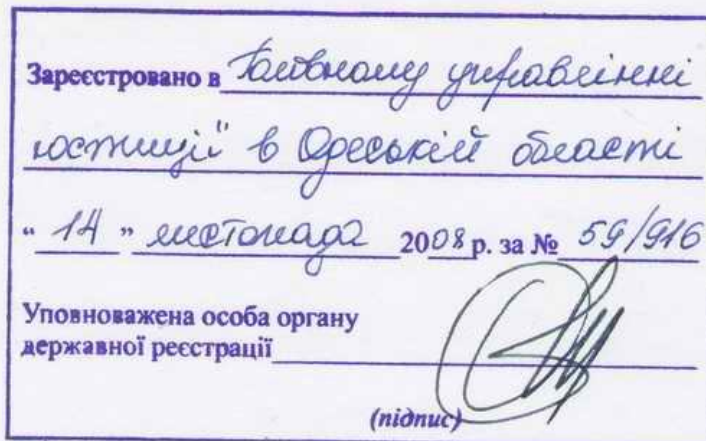 Зареєстровано в Головному управлінні
юстиції" в Одеській області
"14" листопада 2008 р. за № 59/916
Уповноважена особа органу
державної реєстрації
(підпис)